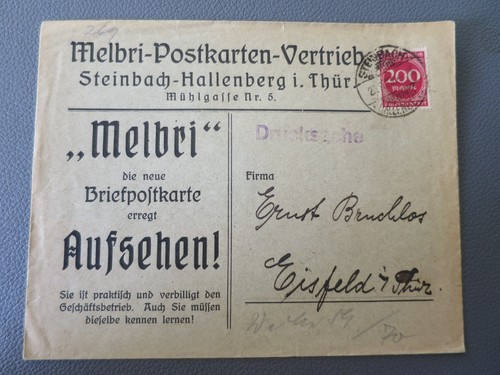 269
Melbri-Postkarten-Vertrieb
Steinbach-Hallenberg i. Thür.
Mühlgasse Nr. 5.
STEINBACH
200
MARK
Drucksache
„Melbri“
die neue
Briefpostkarte
erregt
Aufsehen!
Sie ist praktisch und verbilligt den
Geschäftsbetrieb. Auch Sie müssen
dieselbe kennen lernen!
Firma
Ernst Bruchlos
Eisfeld i/Thür.